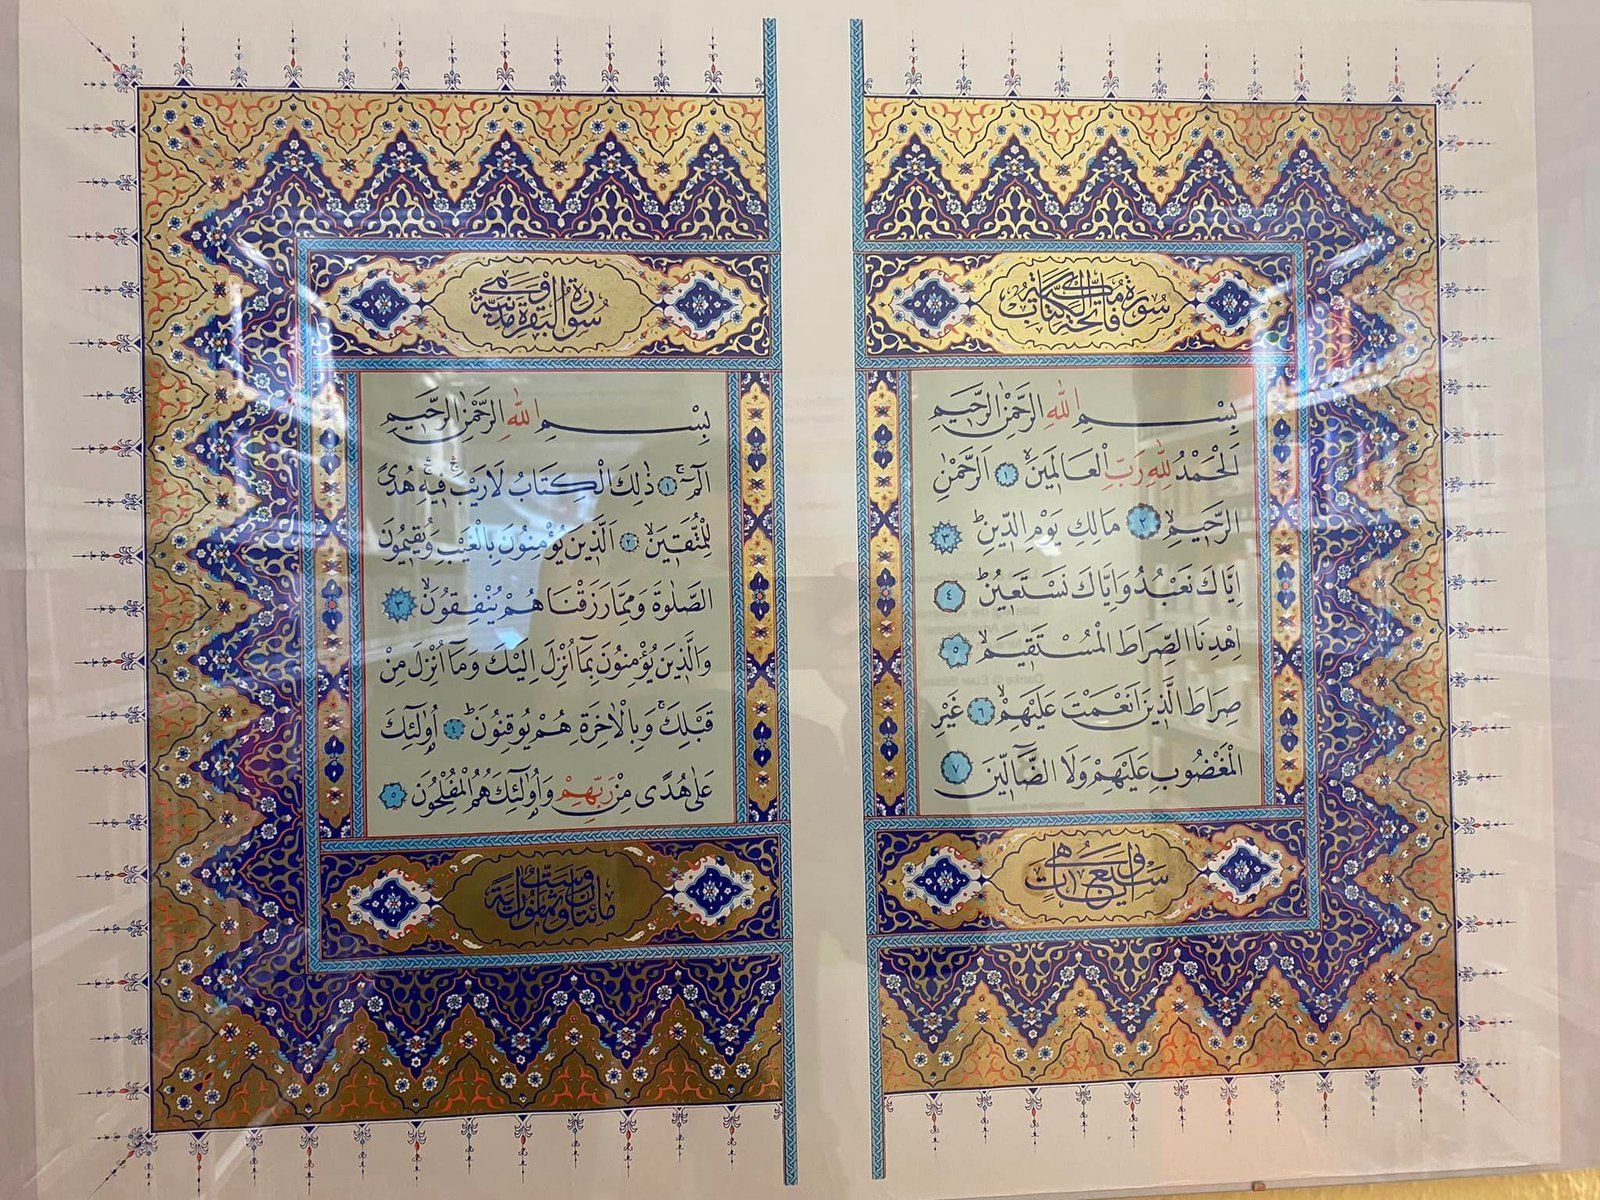 سُورَةُ فَاتِحَةِ الْكِتَابِ
بِسْمِ اللّٰهِ الرَّحْمٰنِ الرَّحٖيمِ
اَلْحَمْدُ لِلّٰهِ رَبِّ الْعَالَمٖينَۙ ١ اَلرَّحْمٰنِ
الرَّحٖيمِۙ ٢ مَالِكِ يَوْمِ الدّٖينِؕ ٣
اِيَّاكَ نَعْبُدُ وَاِيَّاكَ نَسْتَعٖينُؕ ٤
اِهْدِنَا الصِّرَاطَ الْمُسْتَقٖيمَۙ ٥
صِرَاطَ الَّذٖينَ اَنْعَمْتَ عَلَيْهِمْۙ ٦ غَيْرِ
الْمَغْضُوبِ عَلَيْهِمْ وَلَا الضَّٓالّٖينَ ٧
وهي سبع آيات
سورة البقرة وهي مدنية
بِسْمِ اللّٰهِ الرَّحْمٰنِ الرَّحٖيمِ
الٓمٓۚ ١ ذٰلِكَ الْكِتَابُ لَا رَيْبَۛ فٖيهِۛ هُدًى
لِلْمُتَّقٖينَۙ ٢ اَلَّذٖينَ يُؤْمِنُونَ بِالْغَيْبِ وَيُقٖيمُونَ
الصَّلٰوةَ وَمِمَّا رَزَقْنَاهُمْ يُنْفِقُونَۙ ٣
وَالَّذٖينَ يُؤْمِنُونَ بِمَٓا اُنْزِلَ اِلَيْكَ وَمَٓا اُنْزِلَ مِنْ
قَبْلِكَۚ وَبِالْاٰخِرَةِ هُمْ يُوقِنُونَؕ ٤ اُو۬لٰٓئِكَ
عَلٰى هُدًى مِنْ رَبِّهِمْ وَاُو۬لٰٓئِكَ هُمُ الْمُفْلِحُونَ ٥
مائتان وست وثمانون آية